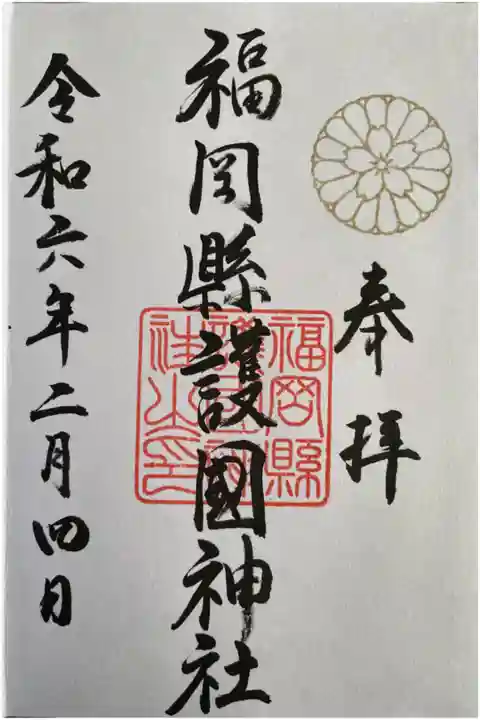 奉拝
福岡縣護國神社
福岡縣
護國神
社之印
令和六年二月四日